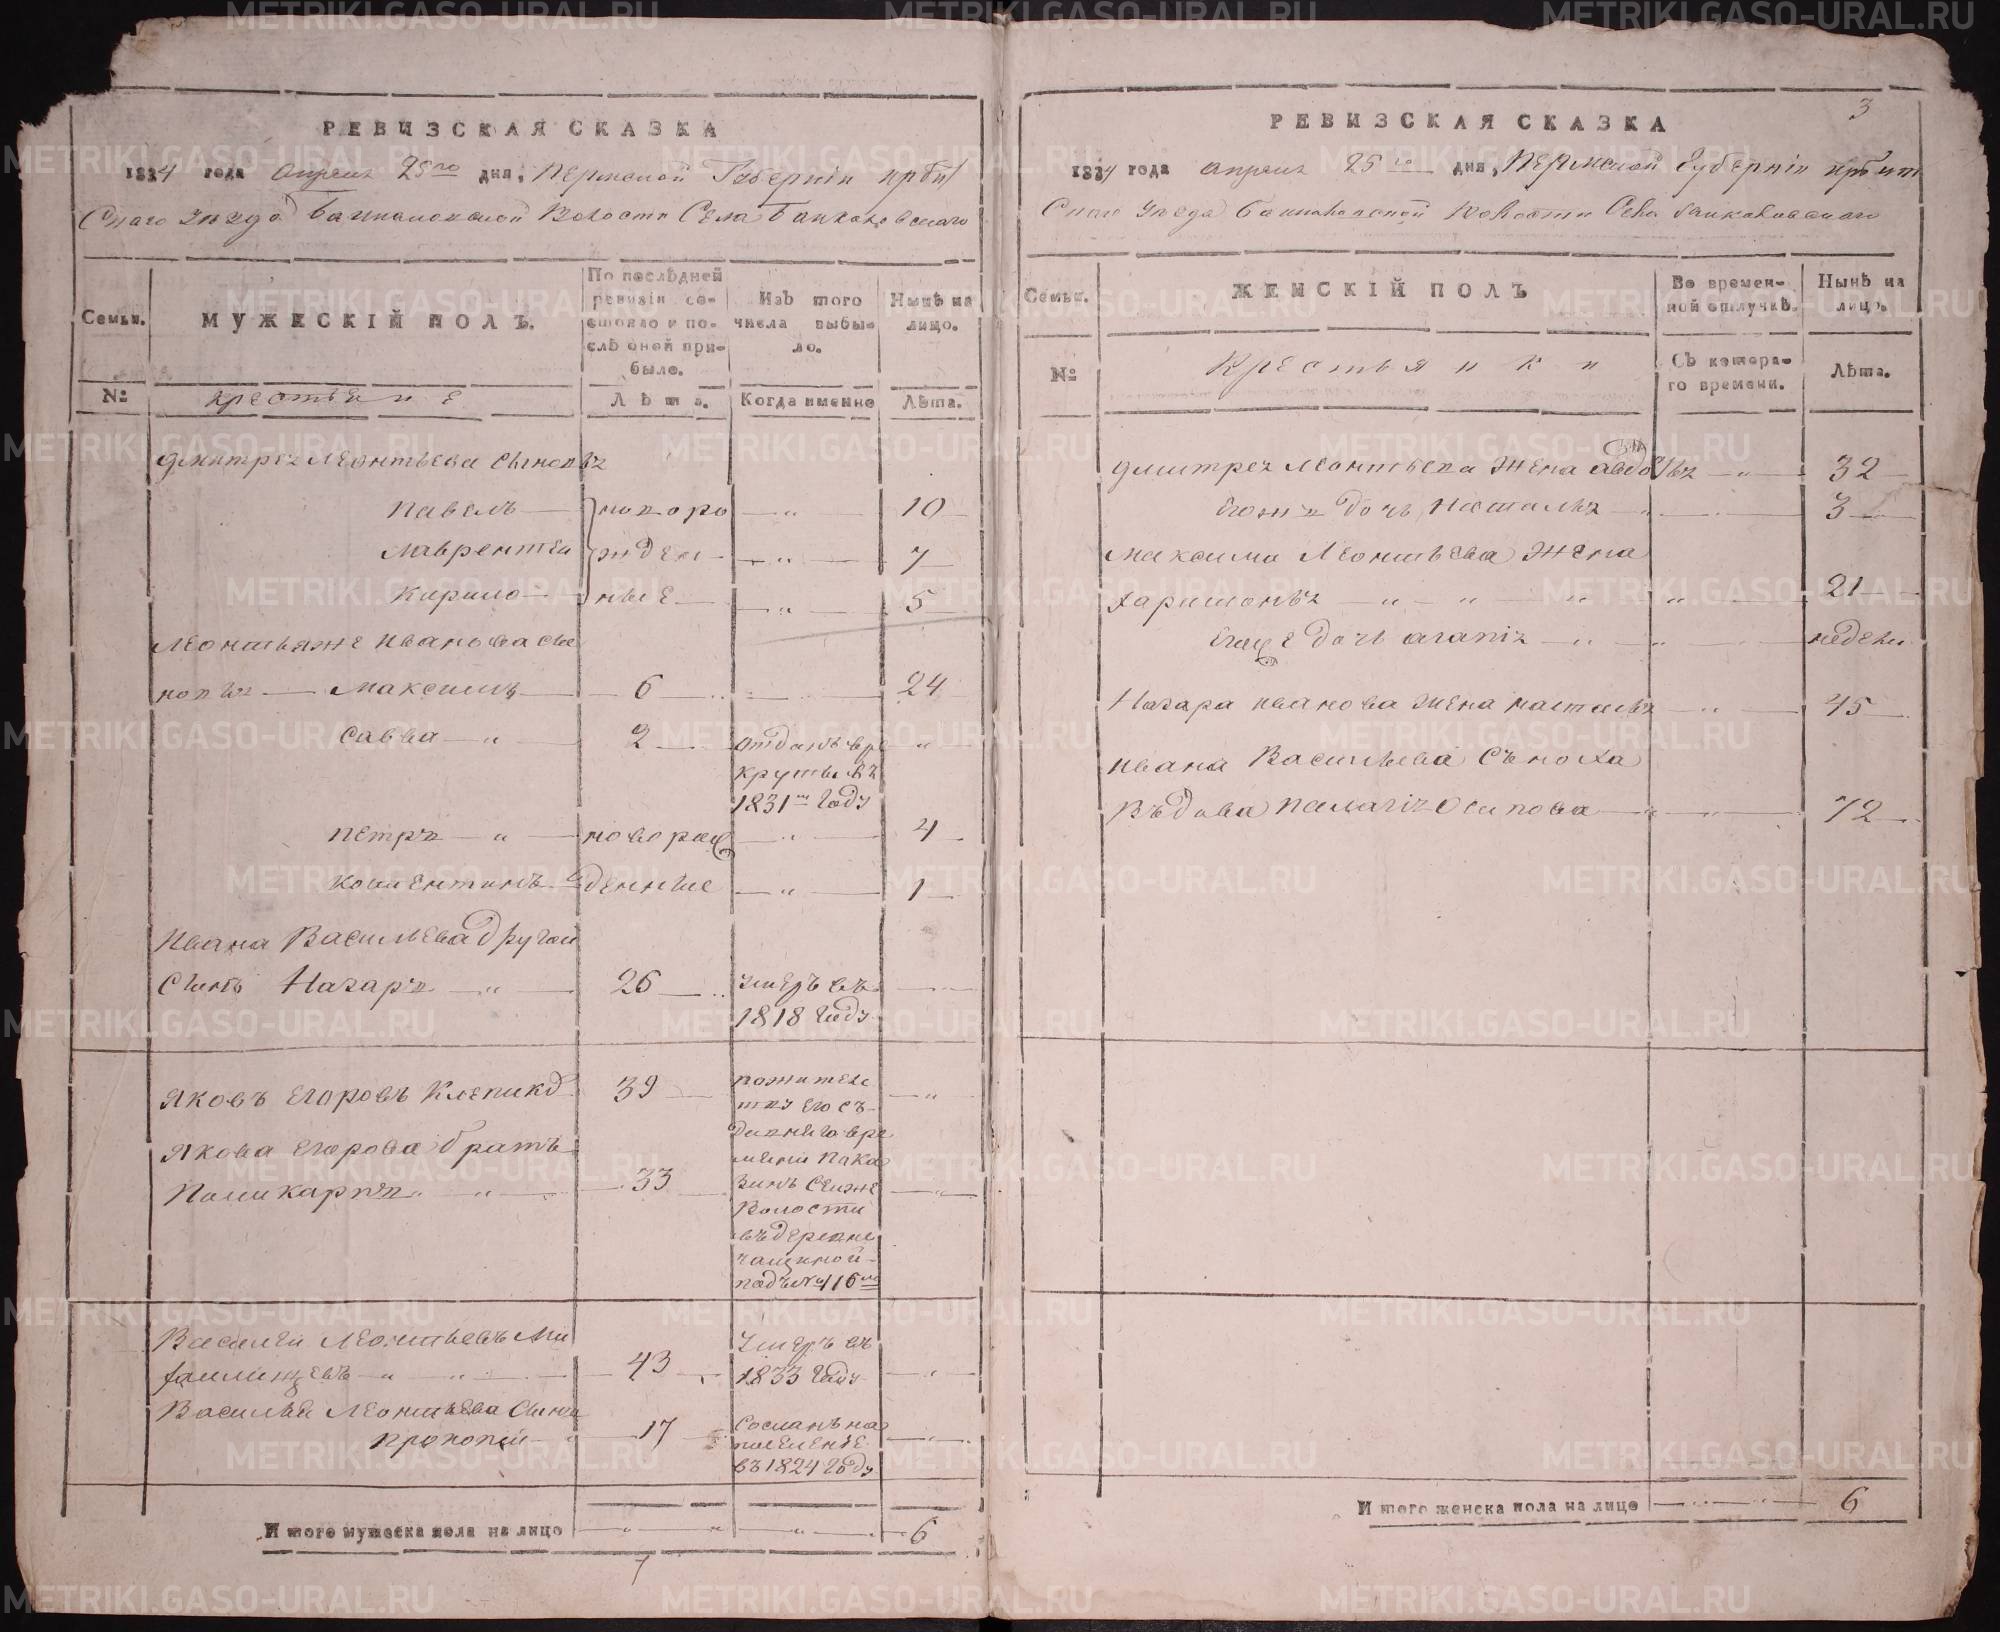 РЕВИЗСКАЯ СКАЗКА
1834 года апреля 25го дня, Пермской Губернiи ирби
Скаго уезда Баикаловской Волости Села Баикаловскаго
Семьи.
МУЖЕСКIЙ ПОЛЪ.
По послѣдней ревизiи состояло и послѣ оной прибыло.
Изъ того числа выбыло.
Нынѣ на лицо.
№
крестьяне
Лѣта.
Когда именно
Лѣта.
дмитрея леонтьева сыновья
павелъ — новоро — " — 10
лаврентеи — жден — " — 7
кирило — ные — " — 5
леонтьяже иванова сы
новья — максимъ — 6 — 24
савва — " — 2 — отданъ вре "
крутывъ
1831м году
петръ — " — новораж — " — 4
денные — " — 1
ивана Васильева другой
сынъ Назаръ — " — 26 — умеръ въ
1818 году
яковъ егоровъ Клепико — 39 — "
якова егорова братъ
поликарпъ — " — 33 — "
Волости
въдеревне
подъ№116мъ
Василеи леонтьевъ ми
— 43 — умеръ въ
1833 году — "
Василья леонтьева сынъ
прокопеи — 17 — Сосланъ на
поселенiе
въ 1824 году
И того мужеска пола на лицо — " — " — 6
7
3
РЕВИЗСКАЯ СКАЗКА
1834 года апреля 25го дня, Пермской Губернiи ирбит
Скаго уезда Баикаловской Волости Села баикаловскаго
Семьи.
ЖЕНСКIЙ ПОЛЪ
Во временной отлучкѣ.
Нынѣ на лицо.
№
Крестьянки
Съ котораго времени.
Лѣта.
дмитрея леонтьева жена авдотья — " — 32
егожъ дочь наталья — " — 3
максима леонтьева жена
харитонья — " — " — 21
дочь агапiя — " — недели
Назара иванова жена наталья — " — 45
ивана Васильева сноха
вьдова палагiя Осипова — " — 72
И того женска пола на лицо — " — 6
METRIKI.GASO-URAL.RU